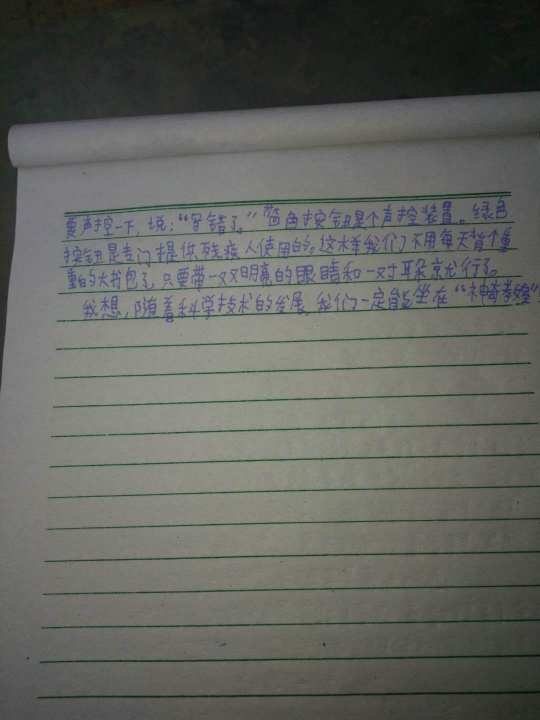 要声控一下,说:“写错了。”蓝色按钮是个声控装置。绿色
按钮是专门提供残疾人使用的。这样我们了不用每天背个重
重的大书包了,只要带一双明亮的眼睛和一对耳朵京尤行了。
我想,随着科学技术的发展,我们一定能坐在“神奇教室”